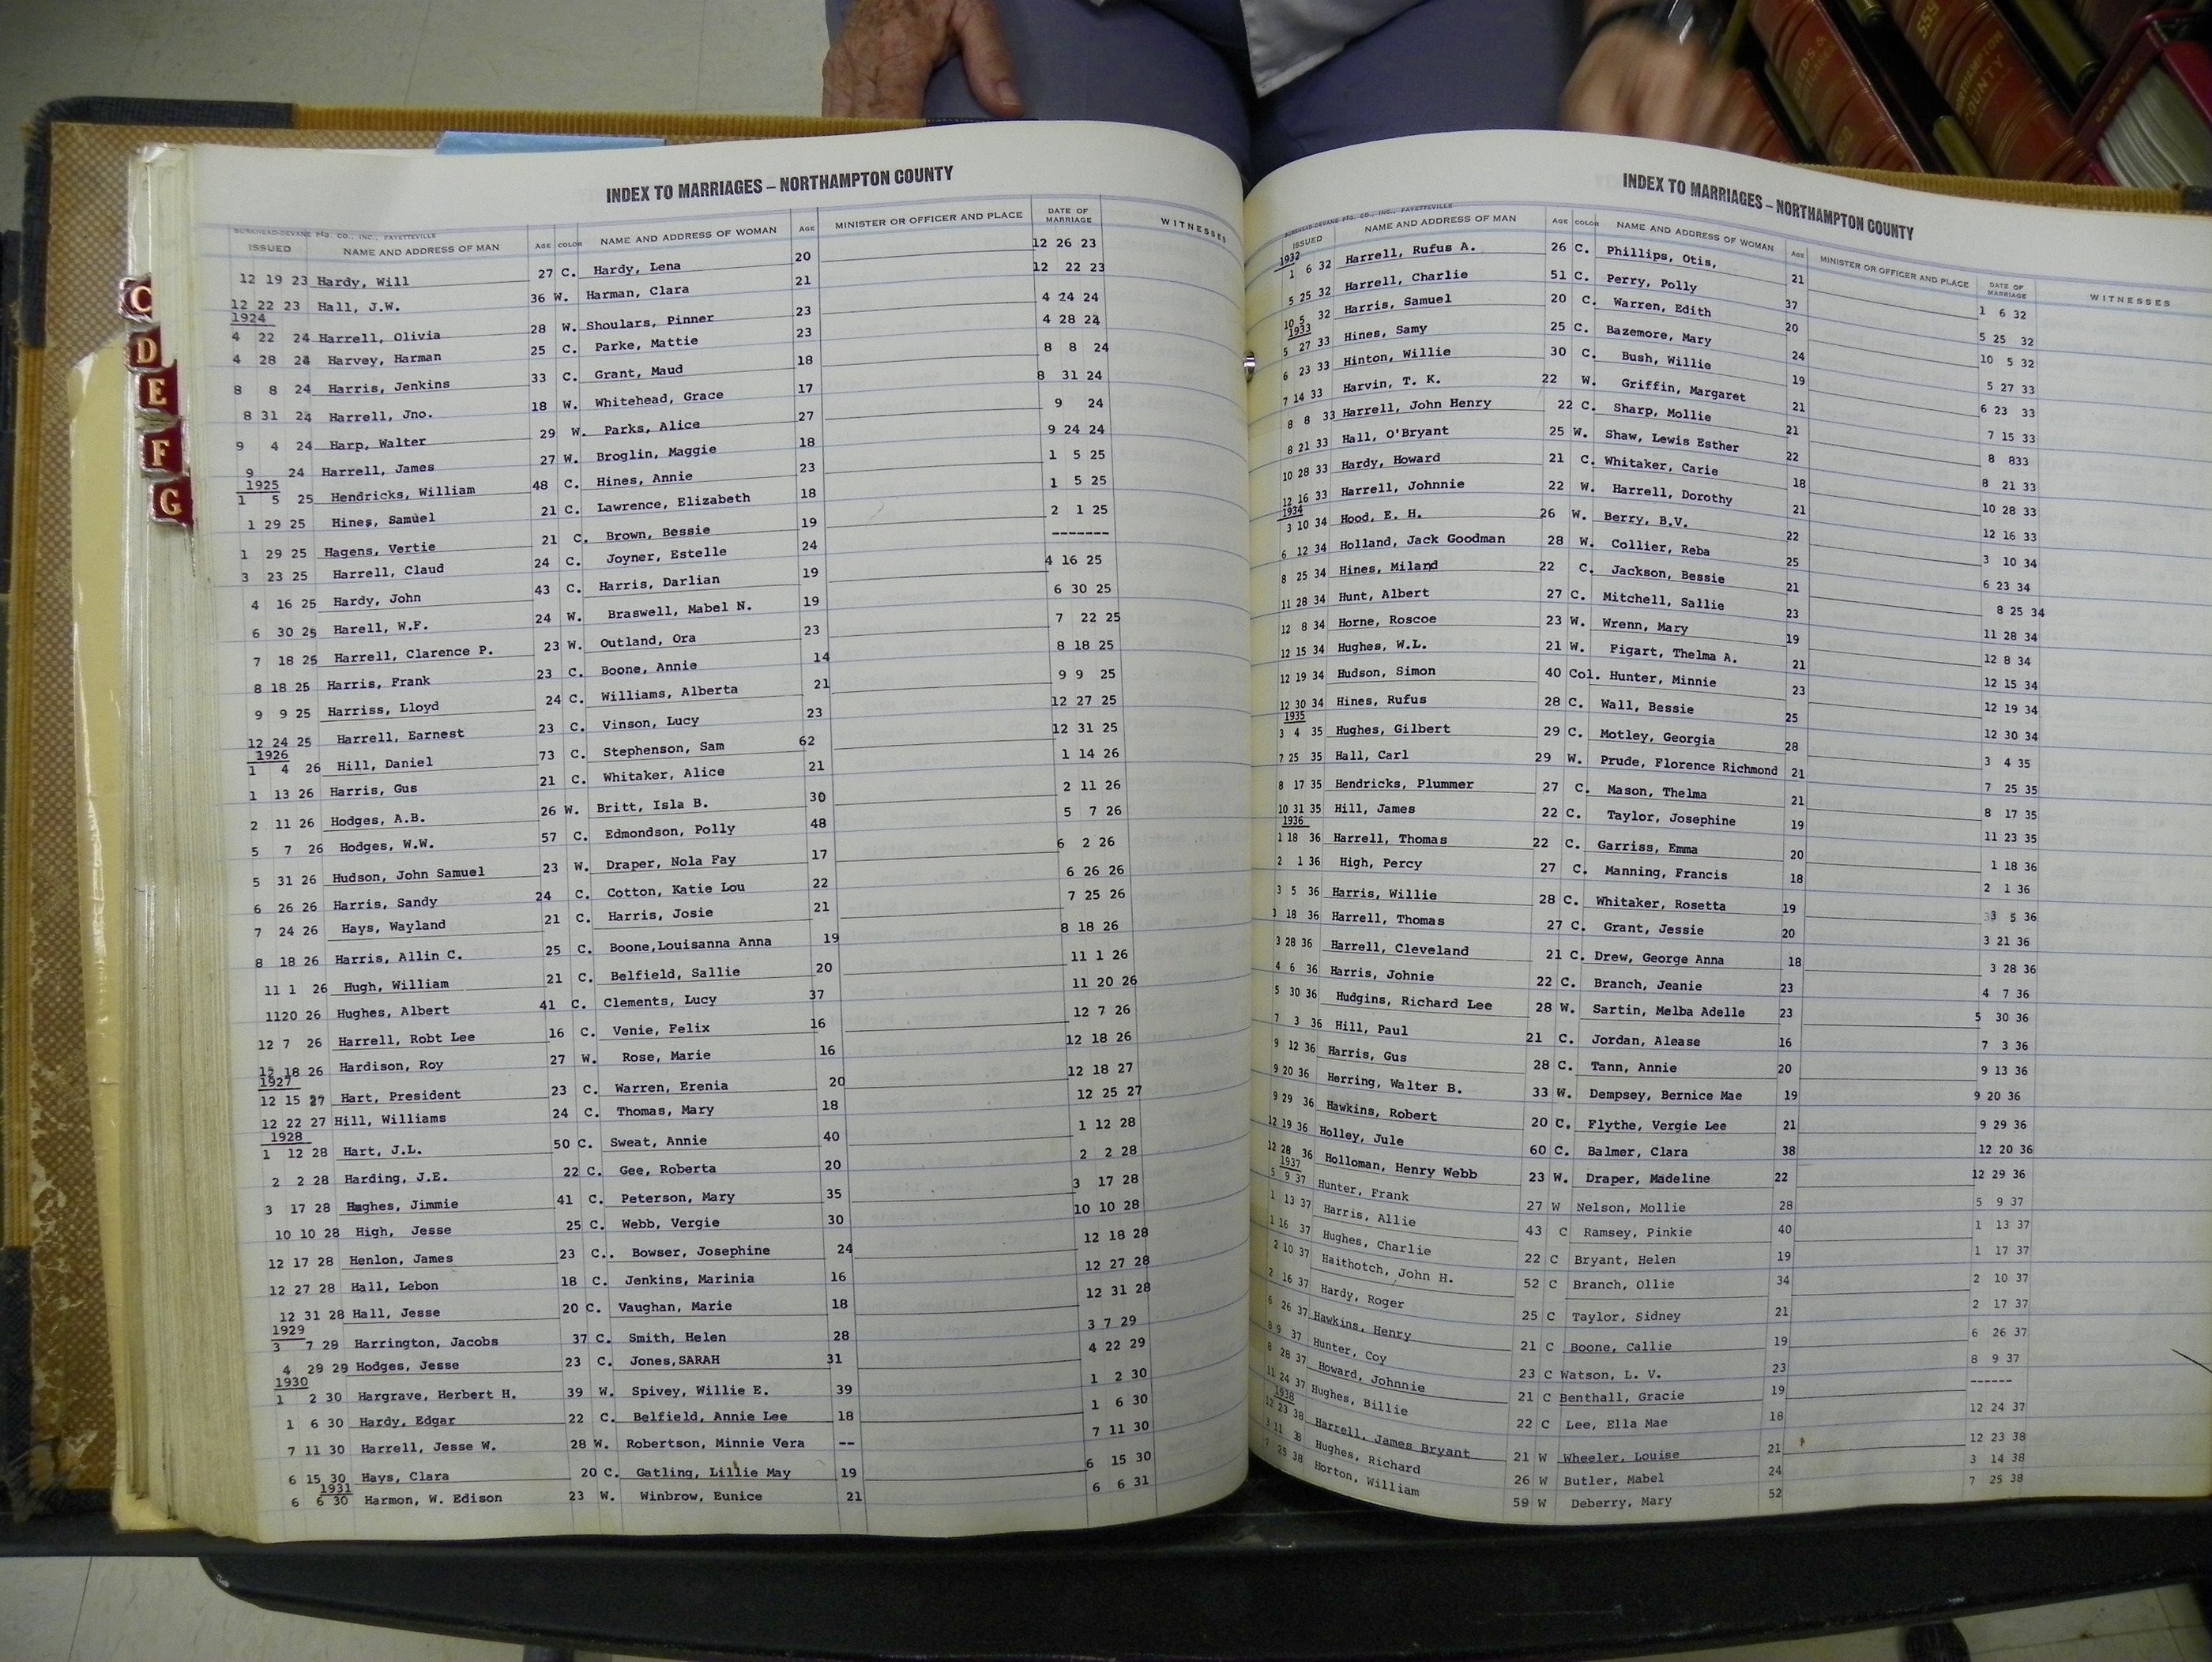 C
D
E
F
G
INDEX TO MARRIAGES – NORTHAMPTON COUNTY
BURKHEAD-DEVANE PTG. CO., INC., FAYETTEVILLE
ISSUED NAME AND ADDRESS OF MAN AGE COLOR NAME AND ADDRESS OF WOMAN AGE MINISTER OR OFFICER AND PLACE DATE OF MARRIAGE WITNESSES
12 19 23 Hardy, Will 27 C. Hardy, Lena 20 12 26 23
12 22 23 Hall, J.W. 36 W. Harman, Clara 21 12 22 23
1924
4 22 24 Harrell, Olivia 28 W. Shoulars, Pinner 23 4 24 24
4 28 24 Harvey, Harman 25 C. Parke, Mattie 23 4 28 24
8 8 24 Harris, Jenkins 33 C. Grant, Maud 18 8 8 24
8 31 24 Harrell, Jno. 18 W. Whitehead, Grace 17 8 31 24
9 4 24 Harp, Walter 29 W. Parks, Alice 27 9 24
9 24 Harrell, James 27 W. Broglin, Maggie 18 9 24 24
1925
1 5 25 Hendricks, William 48 C. Hines, Annie 23 1 5 25
1 29 25 Hines, Samuel 21 C. Lawrence, Elizabeth 18 1 5 25
1 29 25 Hagens, Vertie 21 C. Brown, Bessie 19 2 1 25
3 23 25 Harrell, Claud 24 C. Joyner, Estelle 24 -------
4 16 25 Hardy, John 43 C. Harris, Darlian 19 4 16 25
6 30 25 Harell, W.F. 24 W. Braswell, Mabel N. 19 6 30 25
7 18 25 Harrell, Clarence P. 23 W. Outland, Ora 23 7 22 25
8 18 25 Harris, Frank 23 C. Boone, Annie 14 8 18 25
9 9 25 Harriss, Lloyd 24 C. Williams, Alberta 21 9 9 25
12 24 25 Harrell, Earnest 23 C. Vinson, Lucy 23 12 27 25
1926
1 4 26 Hill, Daniel 73 C. Stephenson, Sam 62 12 31 25
1 13 26 Harris, Gus 21 C. Whitaker, Alice 21 1 14 26
2 11 26 Hodges, A.B. 26 W. Britt, Isla B. 30 2 11 26
5 7 26 Hodges, W.W. 57 C. Edmondson, Polly 48 5 7 26
5 31 26 Hudson, John Samuel 23 W. Draper, Nola Fay 17 6 2 26
6 26 26 Harris, Sandy 24 C. Cotton, Katie Lou 22 6 26 26
7 24 26 Hays, Wayland 21 C. Harris, Josie 21 7 25 26
8 18 26 Harris, Allin C. 25 C. Boone,Louisanna Anna 19 8 18 26
11 1 26 Hugh, William 21 C. Belfield, Sallie 20 11 1 26
1120 26 Hughes, Albert 41 C. Clements, Lucy 37 11 20 26
12 7 26 Harrell, Robt Lee 16 C. Venie, Felix 16 12 7 26
12 18 26 Hardison, Roy 27 W. Rose, Marie 16 12 18 26
1927
12 15 27 Hart, President 23 C. Warren, Erenia 20 12 18 27
12 22 27 Hill, Williams 24 C. Thomas, Mary 18 12 25 27
1928
1 12 28 Hart, J.L. 50 C. Sweat, Annie 40 1 12 28
2 2 28 Harding, J.E. 22 C. Gee, Roberta 20 2 2 28
3 17 28 Hughes, Jimmie 41 C. Peterson, Mary 35 3 17 28
10 10 28 High, Jesse 25 C. Webb, Vergie 30 10 10 28
12 17 28 Henlon, James 23 C.. Bowser, Josephine 24 12 18 28
12 27 28 Hall, Lebon 18 C. Jenkins, Marinia 16 12 27 28
12 31 28 Hall, Jesse 20 C. Vaughan, Marie 18 12 31 28
1929
3 7 29 Harrington, Jacobs 37 C. Smith, Helen 28 3 7 29
4 29 29 Hodges, Jesse 23 C. Jones,SARAH 31 4 22 29
1930
1 2 30 Hargrave, Herbert H. 39 W. Spivey, Willie E. 39 1 2 30
1 6 30 Hardy, Edgar 22 C. Belfield, Annie Lee 18 1 6 30
7 11 30 Harrell, Jesse W. 28 W. Robertson, Minnie Vera -- 7 11 30
6 15 30 Hays, Clara 20 C. Gatling, Lillie May 19 6 15 30
1931
6 6 30 Harmon, W. Edison 23 W. Winbrow, Eunice 21 6 6 31
INDEX TO MARRIAGES – NORTHAMPTON COUNTY
BURKHEAD-DEVANE PTG. CO., INC., FAYETTEVILLE
ISSUED NAME AND ADDRESS OF MAN AGE COLOR NAME AND ADDRESS OF WOMAN AGE MINISTER OR OFFICER AND PLACE DATE OF MARRIAGE WITNESSES
1932
1 6 32 Harrell, Rufus A. 26 C. Phillips, Otis, 21 1 6 32
5 25 32 Harrell, Charlie 51 C. Perry, Polly 37 5 25 32
10 5 32 Harris, Samuel 20 C. Warren, Edith 20 10 5 32
1933
5 27 33 Hines, Samy 25 C. Bazemore, Mary 24 5 27 33
6 23 33 Hinton, Willie 30 C. Bush, Willie 19 6 23 33
7 14 33 Harvin, T. K. 22 W. Griffin, Margaret 21 7 15 33
8 8 33 Harrell, John Henry 22 C. Sharp, Mollie 21 8 833
8 21 33 Hall, O'Bryant 25 W. Shaw, Lewis Esther 22 8 21 33
10 28 33 Hardy, Howard 21 C. Whitaker, Carie 18 10 28 33
12 16 33 Harrell, Johnnie 22 W. Harrell, Dorothy 21 12 16 33
1934
3 10 34 Hood, E. H. 26 W. Berry, B.V. 22 3 10 34
6 12 34 Holland, Jack Goodman 28 W. Collier, Reba 25 6 23 34
8 25 34 Hines, Milard 22 C. Jackson, Bessie 21 8 25 34
11 28 34 Hunt, Albert 27 C. Mitchell, Sallie 23 11 28 34
12 8 34 Horne, Roscoe 23 W. Wrenn, Mary 19 12 8 34
12 15 34 Hughes, W.L. 21 W. Figart, Thelma A. 21 12 15 34
12 19 34 Hudson, Simon 40 Col. Hunter, Minnie 23 12 19 34
12 30 34 Hines, Rufus 28 C. Wall, Bessie 25 12 30 34
1935
3 4 35 Hughes, Gilbert 29 C. Motley, Georgia 28 3 4 35
7 25 35 Hall, Carl 29 W. Prude, Florence Richmond 21 7 25 35
8 17 35 Hendricks, Plummer 27 C. Mason, Thelma 21 8 17 35
10 31 35 Hill, James 22 C. Taylor, Josephine 19 11 23 35
1936
1 18 36 Harrell, Thomas 22 C. Garriss, Emma 20 1 18 36
2 1 36 High, Percy 27 C. Manning, Francis 18 2 1 36
3 5 36 Harris, Willie 28 C. Whitaker, Rosetta 19 3 5 36
3 18 36 Harrell, Thomas 27 C. Grant, Jessie 20 3 21 36
3 28 36 Harrell, Cleveland 21 C. Drew, George Anna 18 3 28 36
4 6 36 Harris, Johnie 22 C. Branch, Jeanie 23 4 7 36
5 30 36 Hudgins, Richard Lee 28 W. Sartin, Melba Adelle 23 5 30 36
7 3 36 Hill, Paul 21 C. Jordan, Alease 16 7 3 36
9 12 36 Harris, Gus 28 C. Tann, Annie 20 9 13 36
9 20 36 Herring, Walter B. 33 W. Dempsey, Bernice Mae 19 9 20 36
9 29 36 Hawkins, Robert 20 C. Flythe, Vergie Lee 21 9 29 36
12 19 36 Holley, Jule 60 C. Balmer, Clara 38 12 20 36
12 28 36 Holloman, Henry Webb 23 W. Draper, Madeline 22 12 29 36
1937
5 9 37 Hunter, Frank 27 W Nelson, Mollie 28 5 9 37
1 13 37 Harris, Allie 43 C Ramsey, Pinkie 40 1 13 37
1 16 37 Hughes, Charlie 22 C Bryant, Helen 19 1 17 37
2 10 37 Haithotch, John H. 52 C Branch, Ollie 34 2 10 37
2 16 37 Hardy, Roger 25 C Taylor, Sidney 21 2 17 37
6 26 37 Hawkins, Henry 21 C Boone, Callie 19 6 26 37
8 9 37 Hunter, Coy 23 C Watson, L. V. 23 8 9 37
8 28 37 Howard, Johnnie 21 C Benthall, Gracie 19 ------
11 24 37 Hughes, Billie 22 C Lee, Ella Mae 18 12 24 37
1938
12 23 38 Harrell, James Bryant 21 W Wheeler, Louise 21 12 23 38
3 11 38 Hughes, Richard 26 W Butler, Mabel 24 3 14 38
25 38 Horton, William 59 W Deberry, Mary 52 7 25 38
559
NORTHAMPTON
COUNTY